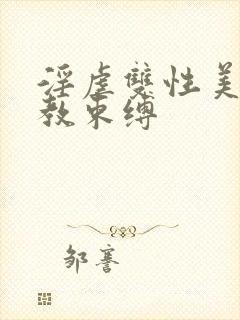 淫虐雙性美
教束縛
邹謇